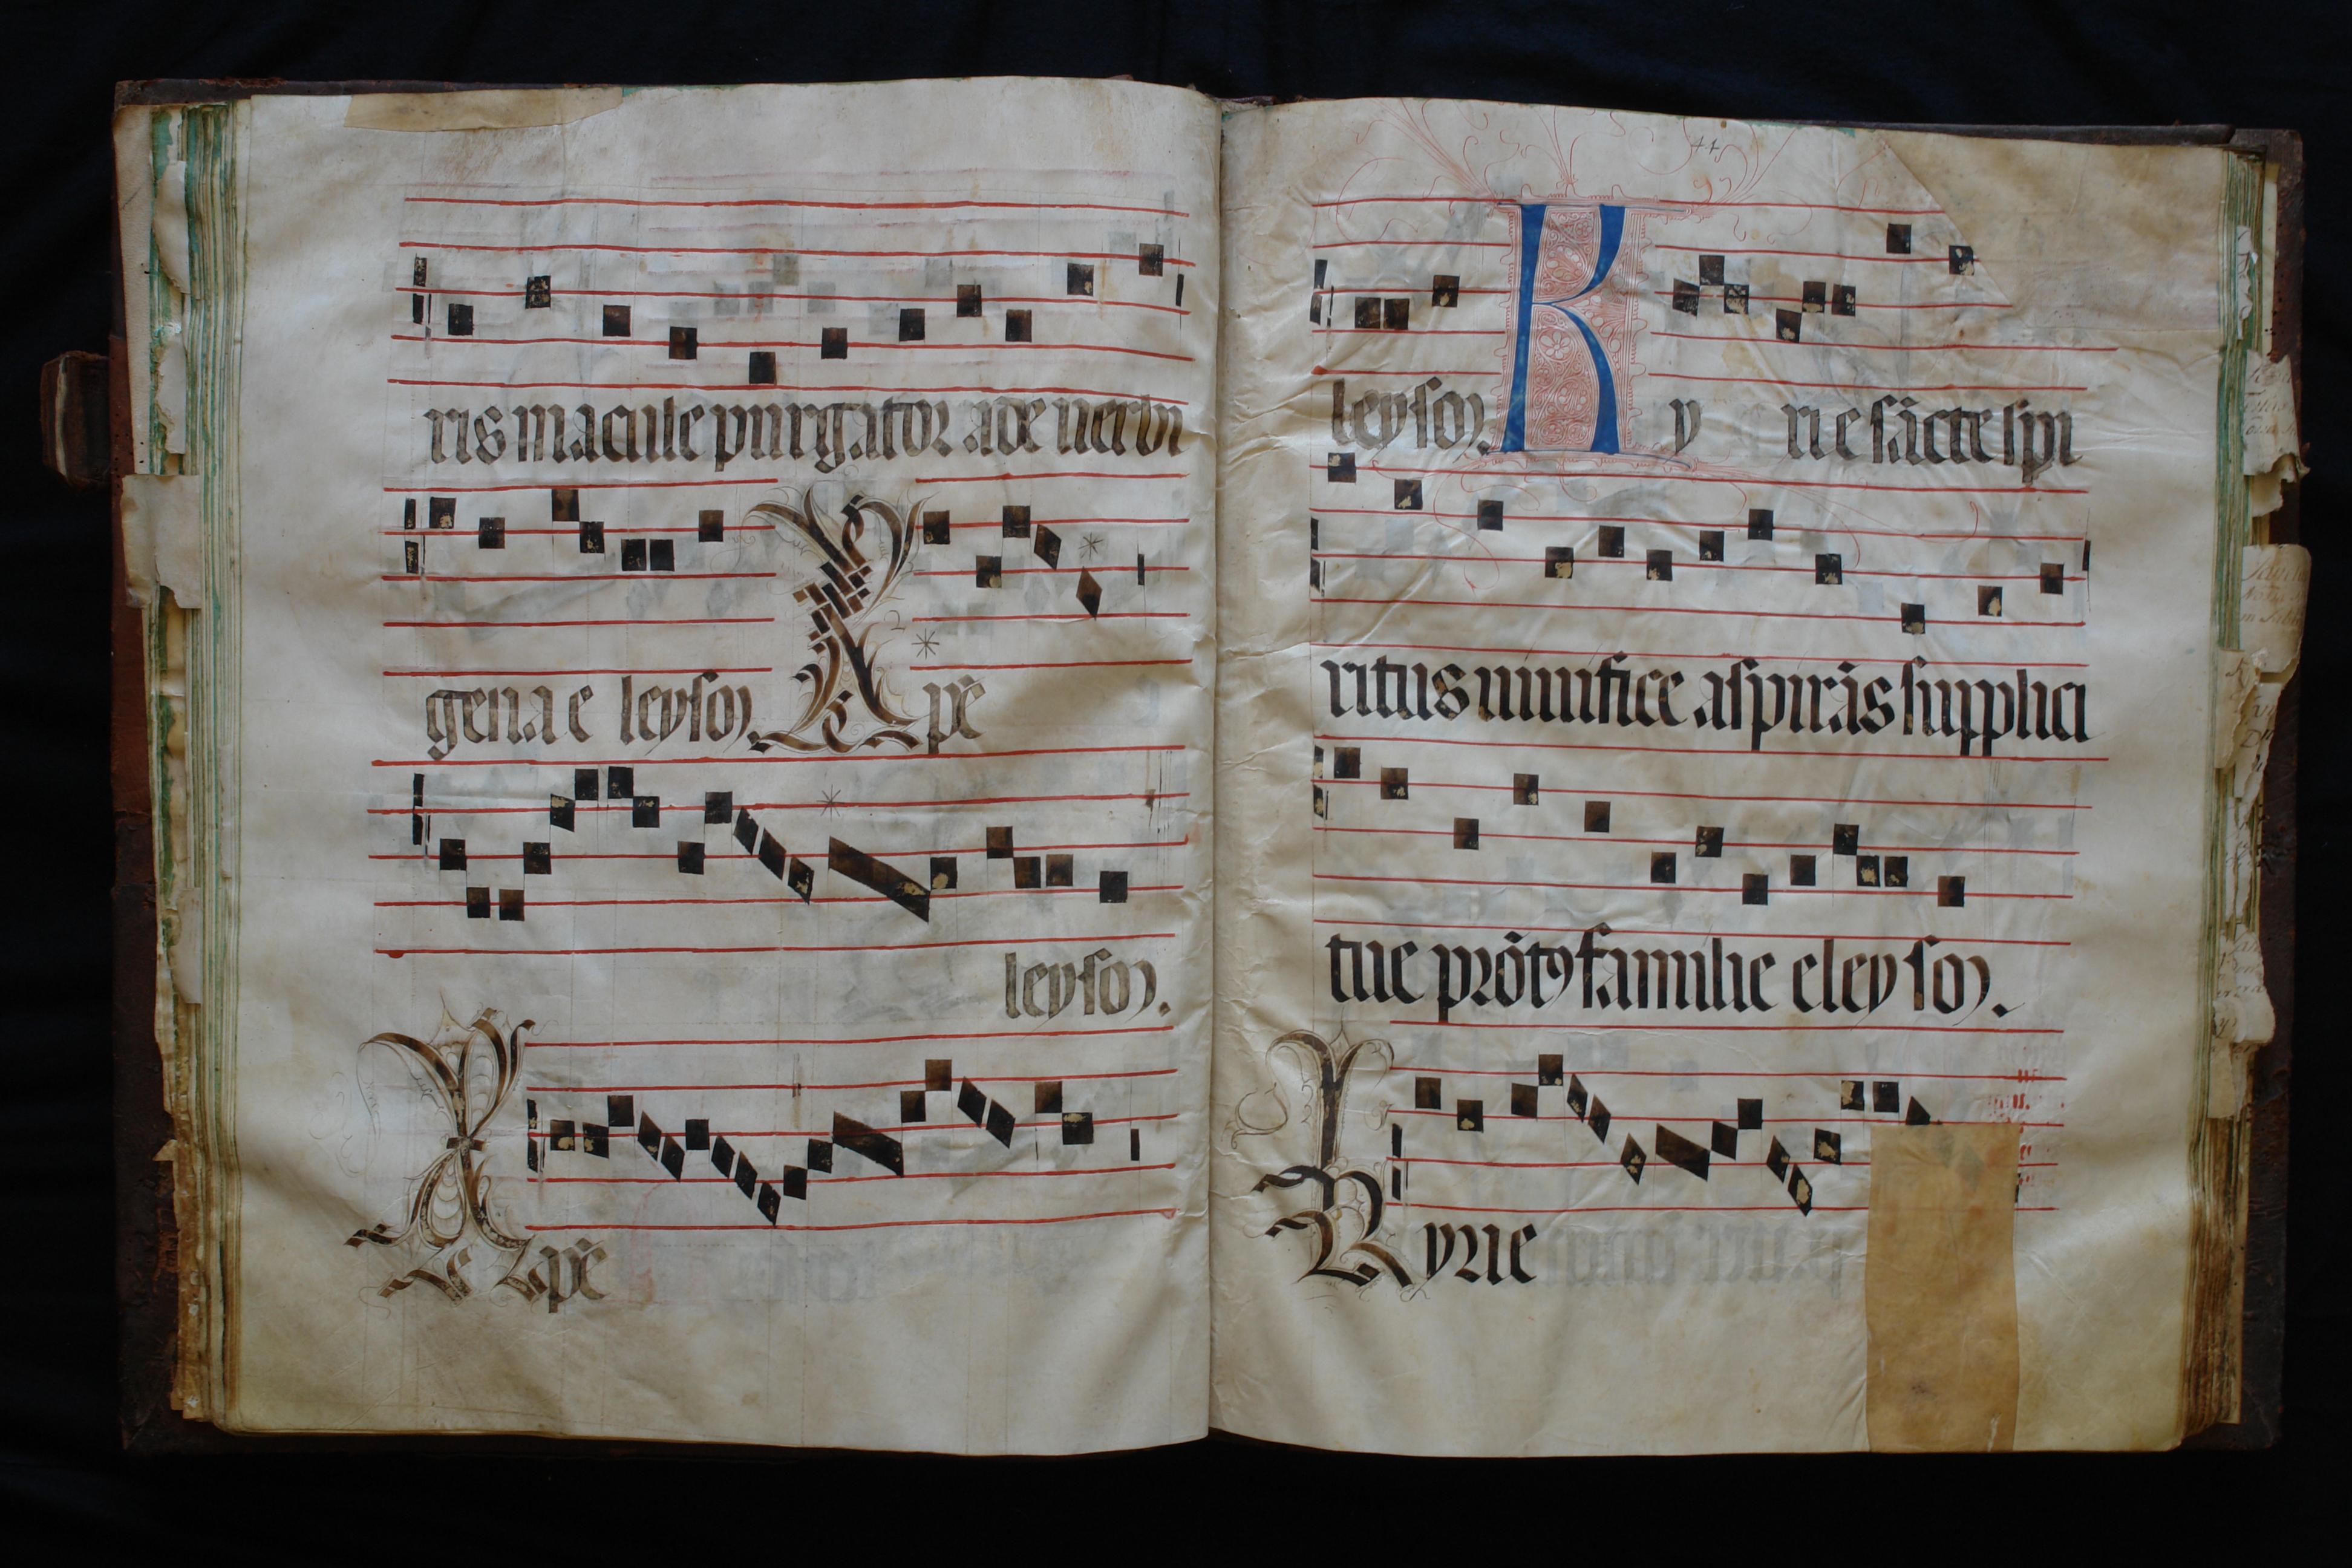 ris macule purgator ade uerbi
gena e leyson. Xpē
leyson.
Xpē
44
leyson. Ky rie sācte spi
ritus munifice aspirās supplici
tue prōtꝰ familie eleyson.
Kyrie